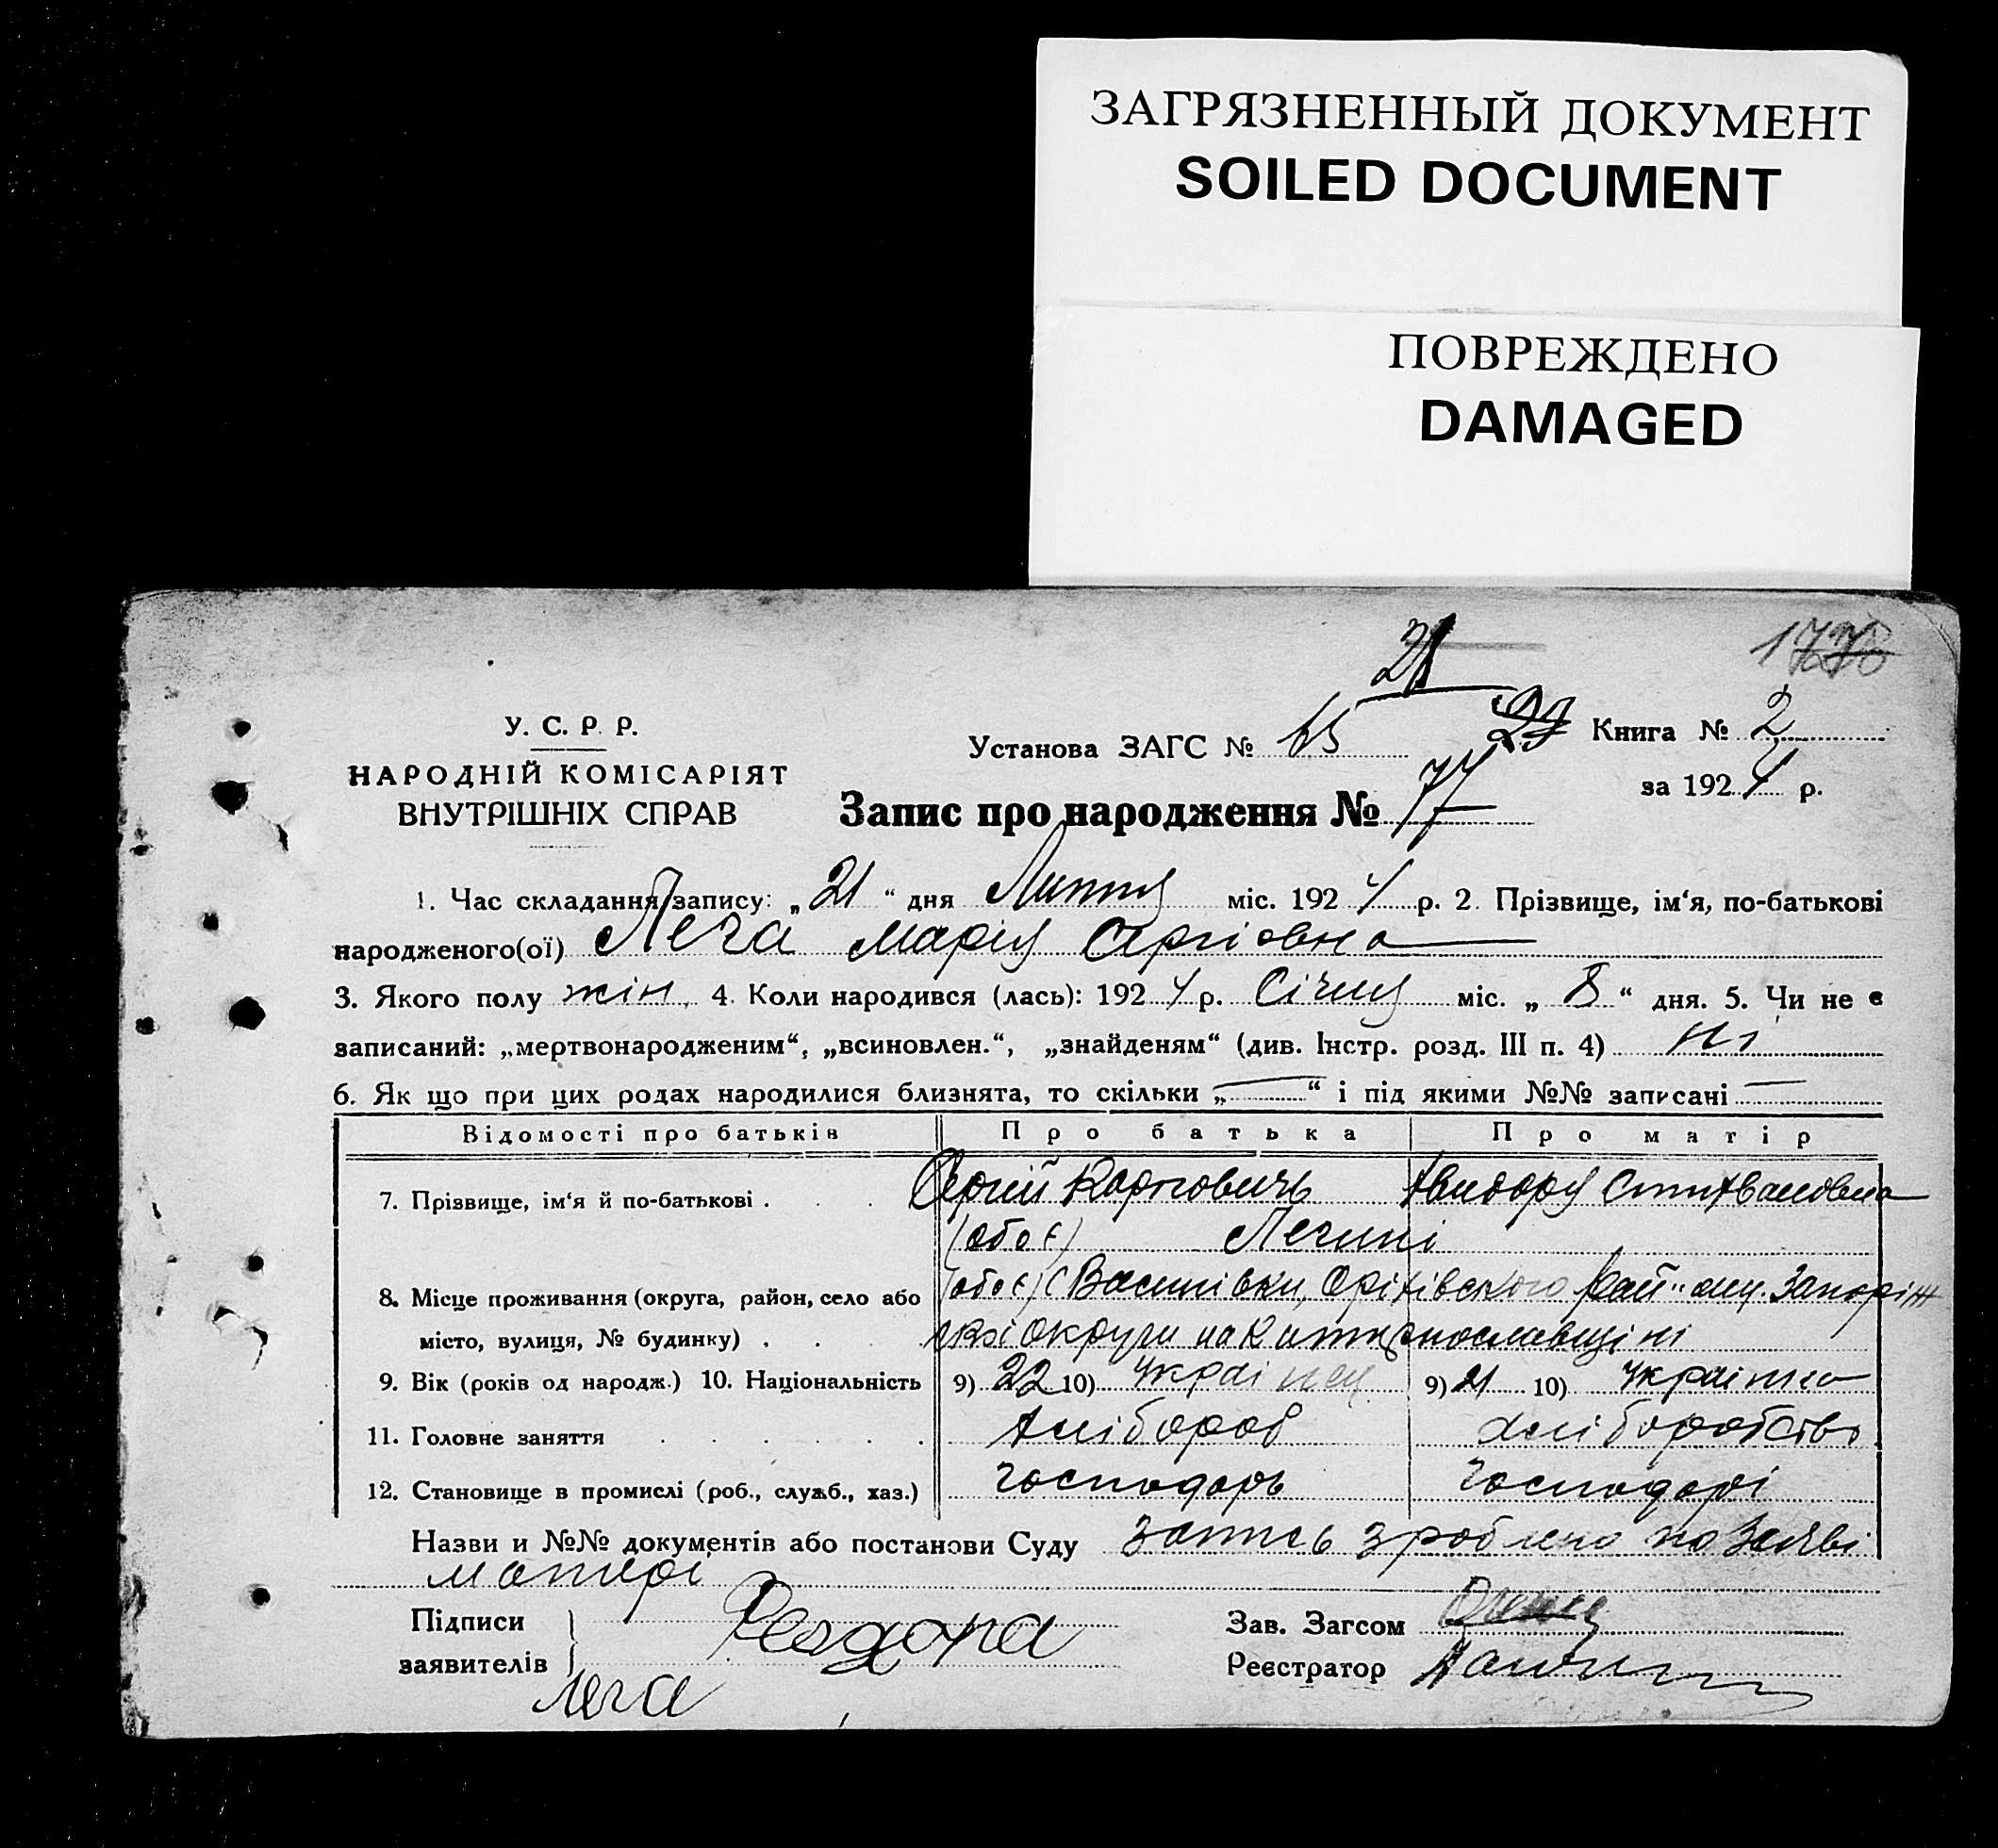 ЗАГРЯЗНЕННЫЙ ДОКУМЕНТ
SOILED DOCUMENT
ПОВРЕЖДЕНО
DAMAGED
21
У. С. Р. Р.
НАРОДНІЙ КОМІСАРІЯТ
ВНУТРІШНІХ СПРАВ
Установа ЗАГС №
Книга № 2
за 1924 р.
Запис про народження № 77
1. Час складання запису: „21“ дня Лютня міс. 1924 р. 2. Прізвище, ім‘я, по-батькові
народженого(ої) Леча Марія Сергієвна
3. Якого полу жін. 4. Коли народився (лась): 1924 р. Січня міс. „8“ дня. 5. Чи не є
записаний: „мертвонародженим“, „всиновлен.“, „знайденям“ (див. Інстр. розд. III п. 4) ні
6. Як що при цих родах народилися близнята, то скільки „—“ і під якими №№ записані —
Відомості про батьків Про батька Про матір
7. Прізвище, ім‘я й по-батькові . Сергій Карпович
(обоє)
8. Місце проживання (округа, район, село або (обоє) с Василівки, Оріхівського рай
місто, вулиця, № будинку) . округи на Катеринославщіні
9. Вік (років од народж.) 10. Національність 9) 22 10) Українец 9) 21 10) Українка
11. Головне заняття Хлібороб хліборобство
12. Становище в промислі (роб., служб., хаз.) господарь господарі
Назви и №№ документів або постанови Суду Запись зроблено по заяві
матері
Підписи
заявителів
Феодора
Леча
Зав. Загсом
Реєстратор